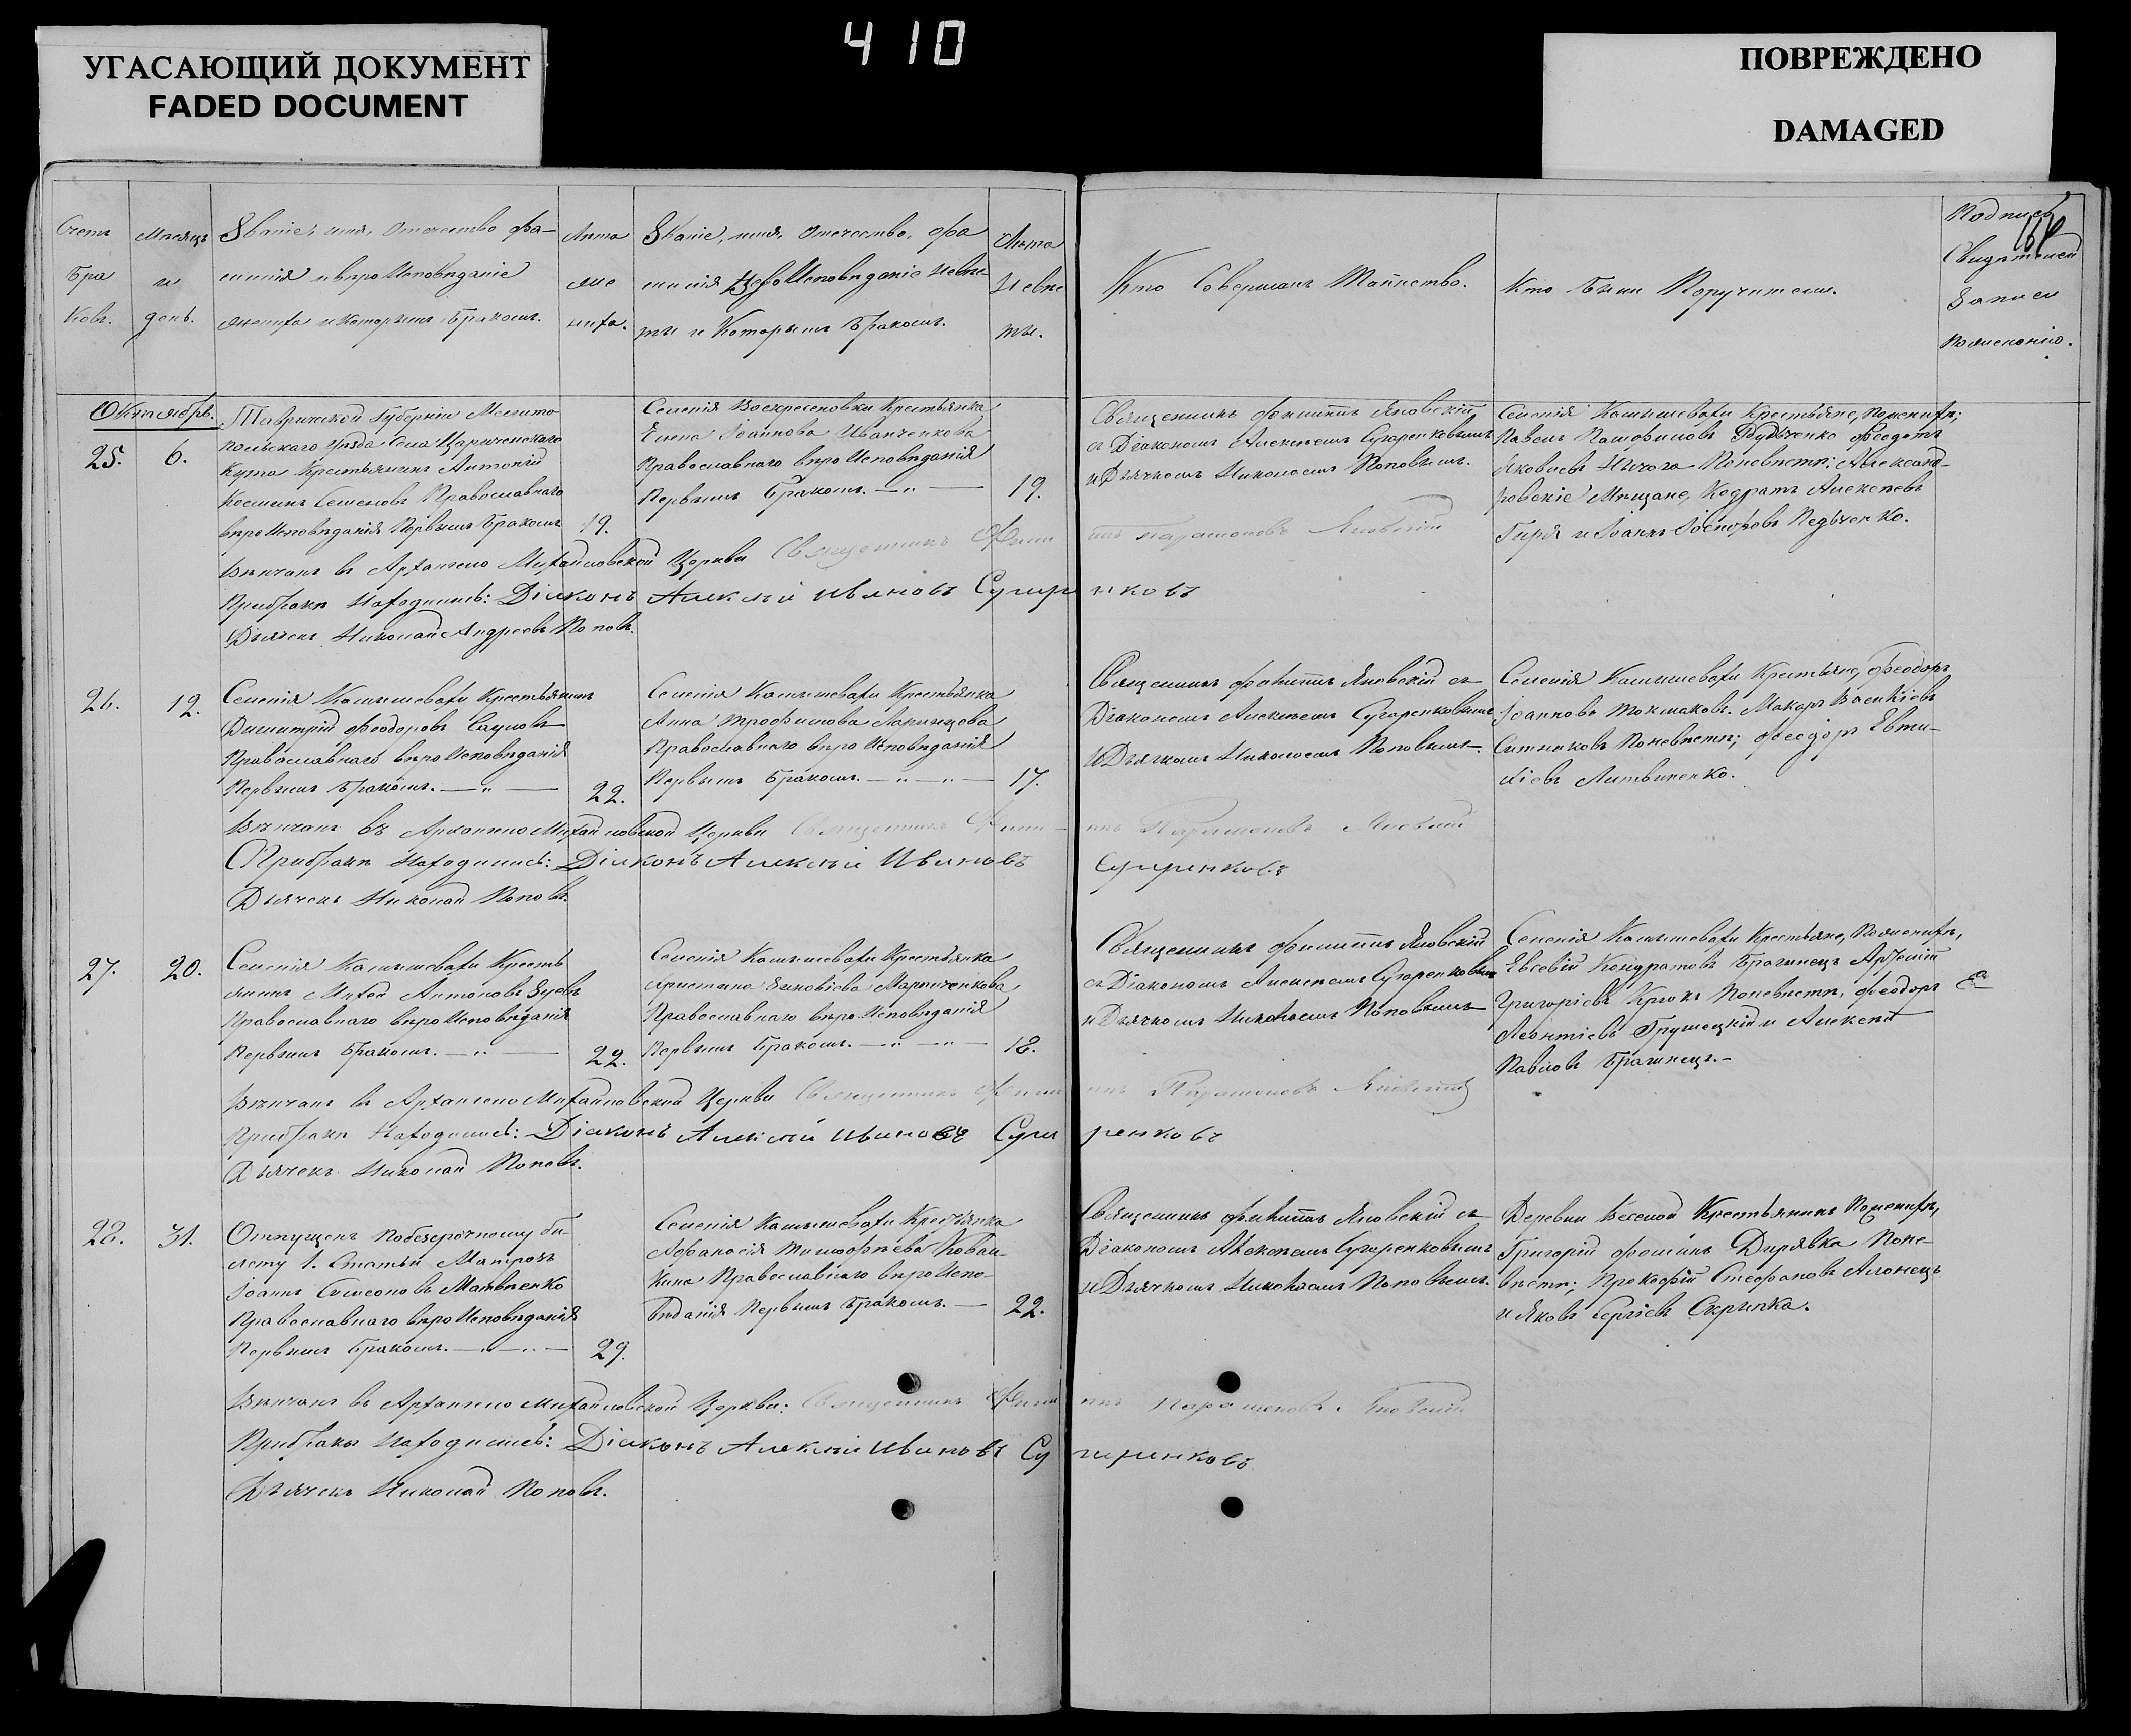 УГАСАЮЩИЙ ДОКУМЕНТ
FADED DOCUMENT
410
ПОВРЕЖДЕНО
DAMAGED
Счетъ
Бра
ковъ.
Мѣсяцъ
и
день.
Званіе, имя, отечество, фа-
милія и вѣроисповѣданіе
жениха и которымъ бракомъ.
Лѣта
же
ниха.
Званіе, имя, отечество, фа
милія вѣроисповѣданіе невѣс
ты и которымъ бракомъ.
Лѣта
невѣс
ты.
Кто совершалъ таинство.
Кто были поручители.
Подпись
свидѣтелей
записи
по желанію.
Октябрь.
25.
6.
Таврической Губерніи Мелито
польскаго уѣзда села Цариченскаго
Кута крестьянинъ Антоній
Косминъ Семеновъ Православнаго
вѣроисповѣданія первымъ бракомъ
19.
Селенія Воскресеновки крестьянка
Елена Іоаннова Иванченкова
Православнаго вѣроисповѣданія
первымъ бракомъ.
19.
Священникъ Филиппъ Яновскій
съ Діакономъ Алексѣемъ Сугаренковымъ
и Дьячкомъ Николаемъ Поповымъ.
Селенія Камышевахи крестьяне, по женихѣ;
Павелъ Феодотъ
Яковлевъ по невѣстѣ: Александ-
ровскіе мѣщане, Кодратъ Алексѣевъ
Гиря и Іоаннъ
Вѣнчанъ въ Архангело Михайловской Церкви Священникъ Филиппъ Парамоновъ Яновскій
При бракѣ находились: Діаконъ Алексѣй Ивановъ Сугаренковъ
Дьячекъ Николай Андреевъ Поповъ.
26.
12.
Селенія Камышевахи крестьянинъ
Димитрій Феодоровъ Сауловъ
Православнаго вѣроисповѣданія
первымъ бракомъ.
22.
Селенія Камышевахи крестьянка
Анна Трофимова Ларинцева
Православнаго вѣроисповѣданія
первымъ бракомъ.
17.
Священникъ Филиппъ Яновскій съ
Діакономъ Алексѣемъ Сугаренковымъ
и Дьячкомъ Николаемъ Поповымъ.
Селенія Камышевахи крестьяне, Феодоръ
Іоанновъ Токмаковъ. Макаръ Василіевъ
Ситниковъ по невѣстѣ; Феодоръ Евти-
хіевъ Литвиненко.
Вѣнчанъ въ Архангело Михайловской Церкви Священникъ Филиппъ Парамоновъ Яновскій
При бракѣ находились: Діаконъ Алексѣй Ивановъ Сугаренковъ
Дьячекъ Николай Поповъ.
27.
20.
Селенія Камышевахи кресть
янинъ Михей Антоновъ Зуевъ
Православнаго вѣроисповѣданія
первымъ бракомъ.
22.
Селенія Камышевахи крестьянка
Христина Яковлева Марченкова
Православнаго вѣроисповѣданія
первымъ бракомъ.
18.
Священникъ Филиппъ Яновскій
съ Діакономъ Алексѣемъ Сугаренковымъ
и Дьячкомъ Николаемъ Поповымъ
Селенія Камышевахи крестьяне, по женихѣ,
Евсевій Кондратовъ Бражнецъ
Григоріевъ Крюкъ по невѣстѣ, Феодоръ
Леонтіевъ Грушецкій и Алексѣй
Павловъ Бражнецъ.
Вѣнчанъ въ Архангело Михайловской Церкви Священникъ Филиппъ Парамоновъ Яновскій
При бракѣ находились: Діаконъ Алексѣй Ивановъ Сугаренковъ
Дьячекъ Николай Поповъ.
28.
31.
Отпущенъ по безсрочному би-
лету 1. статьи матросъ
Іоаннъ Симеоновъ Матвѣенко
Православнаго вѣроисповѣданія
первымъ бракомъ.
29.
Селенія Камышевахи крестьянка
Афанасія Тимофѣева
Православнаго вѣроиспо-
вѣданія первымъ бракомъ.
22.
Священникъ Филиппъ Яновскій съ
Діакономъ Алексѣемъ Сугаренковымъ
и Дьячкомъ Николаемъ Поповымъ.
Деревни Веселой крестьянинъ по женихѣ,
Григорій Фоминъ Дирявка по не-
вѣстѣ; Прокофій Стефановъ
и Яковъ Сергіевъ Скрипка.
Вѣнчанъ въ Архангело Михайловской Церкви: Священникъ Филиппъ Парамоновъ Яновскій
При бракѣ находились: Діаконъ Алексѣй Ивановъ Сугаренковъ
Дьячекъ Николай Поповъ.